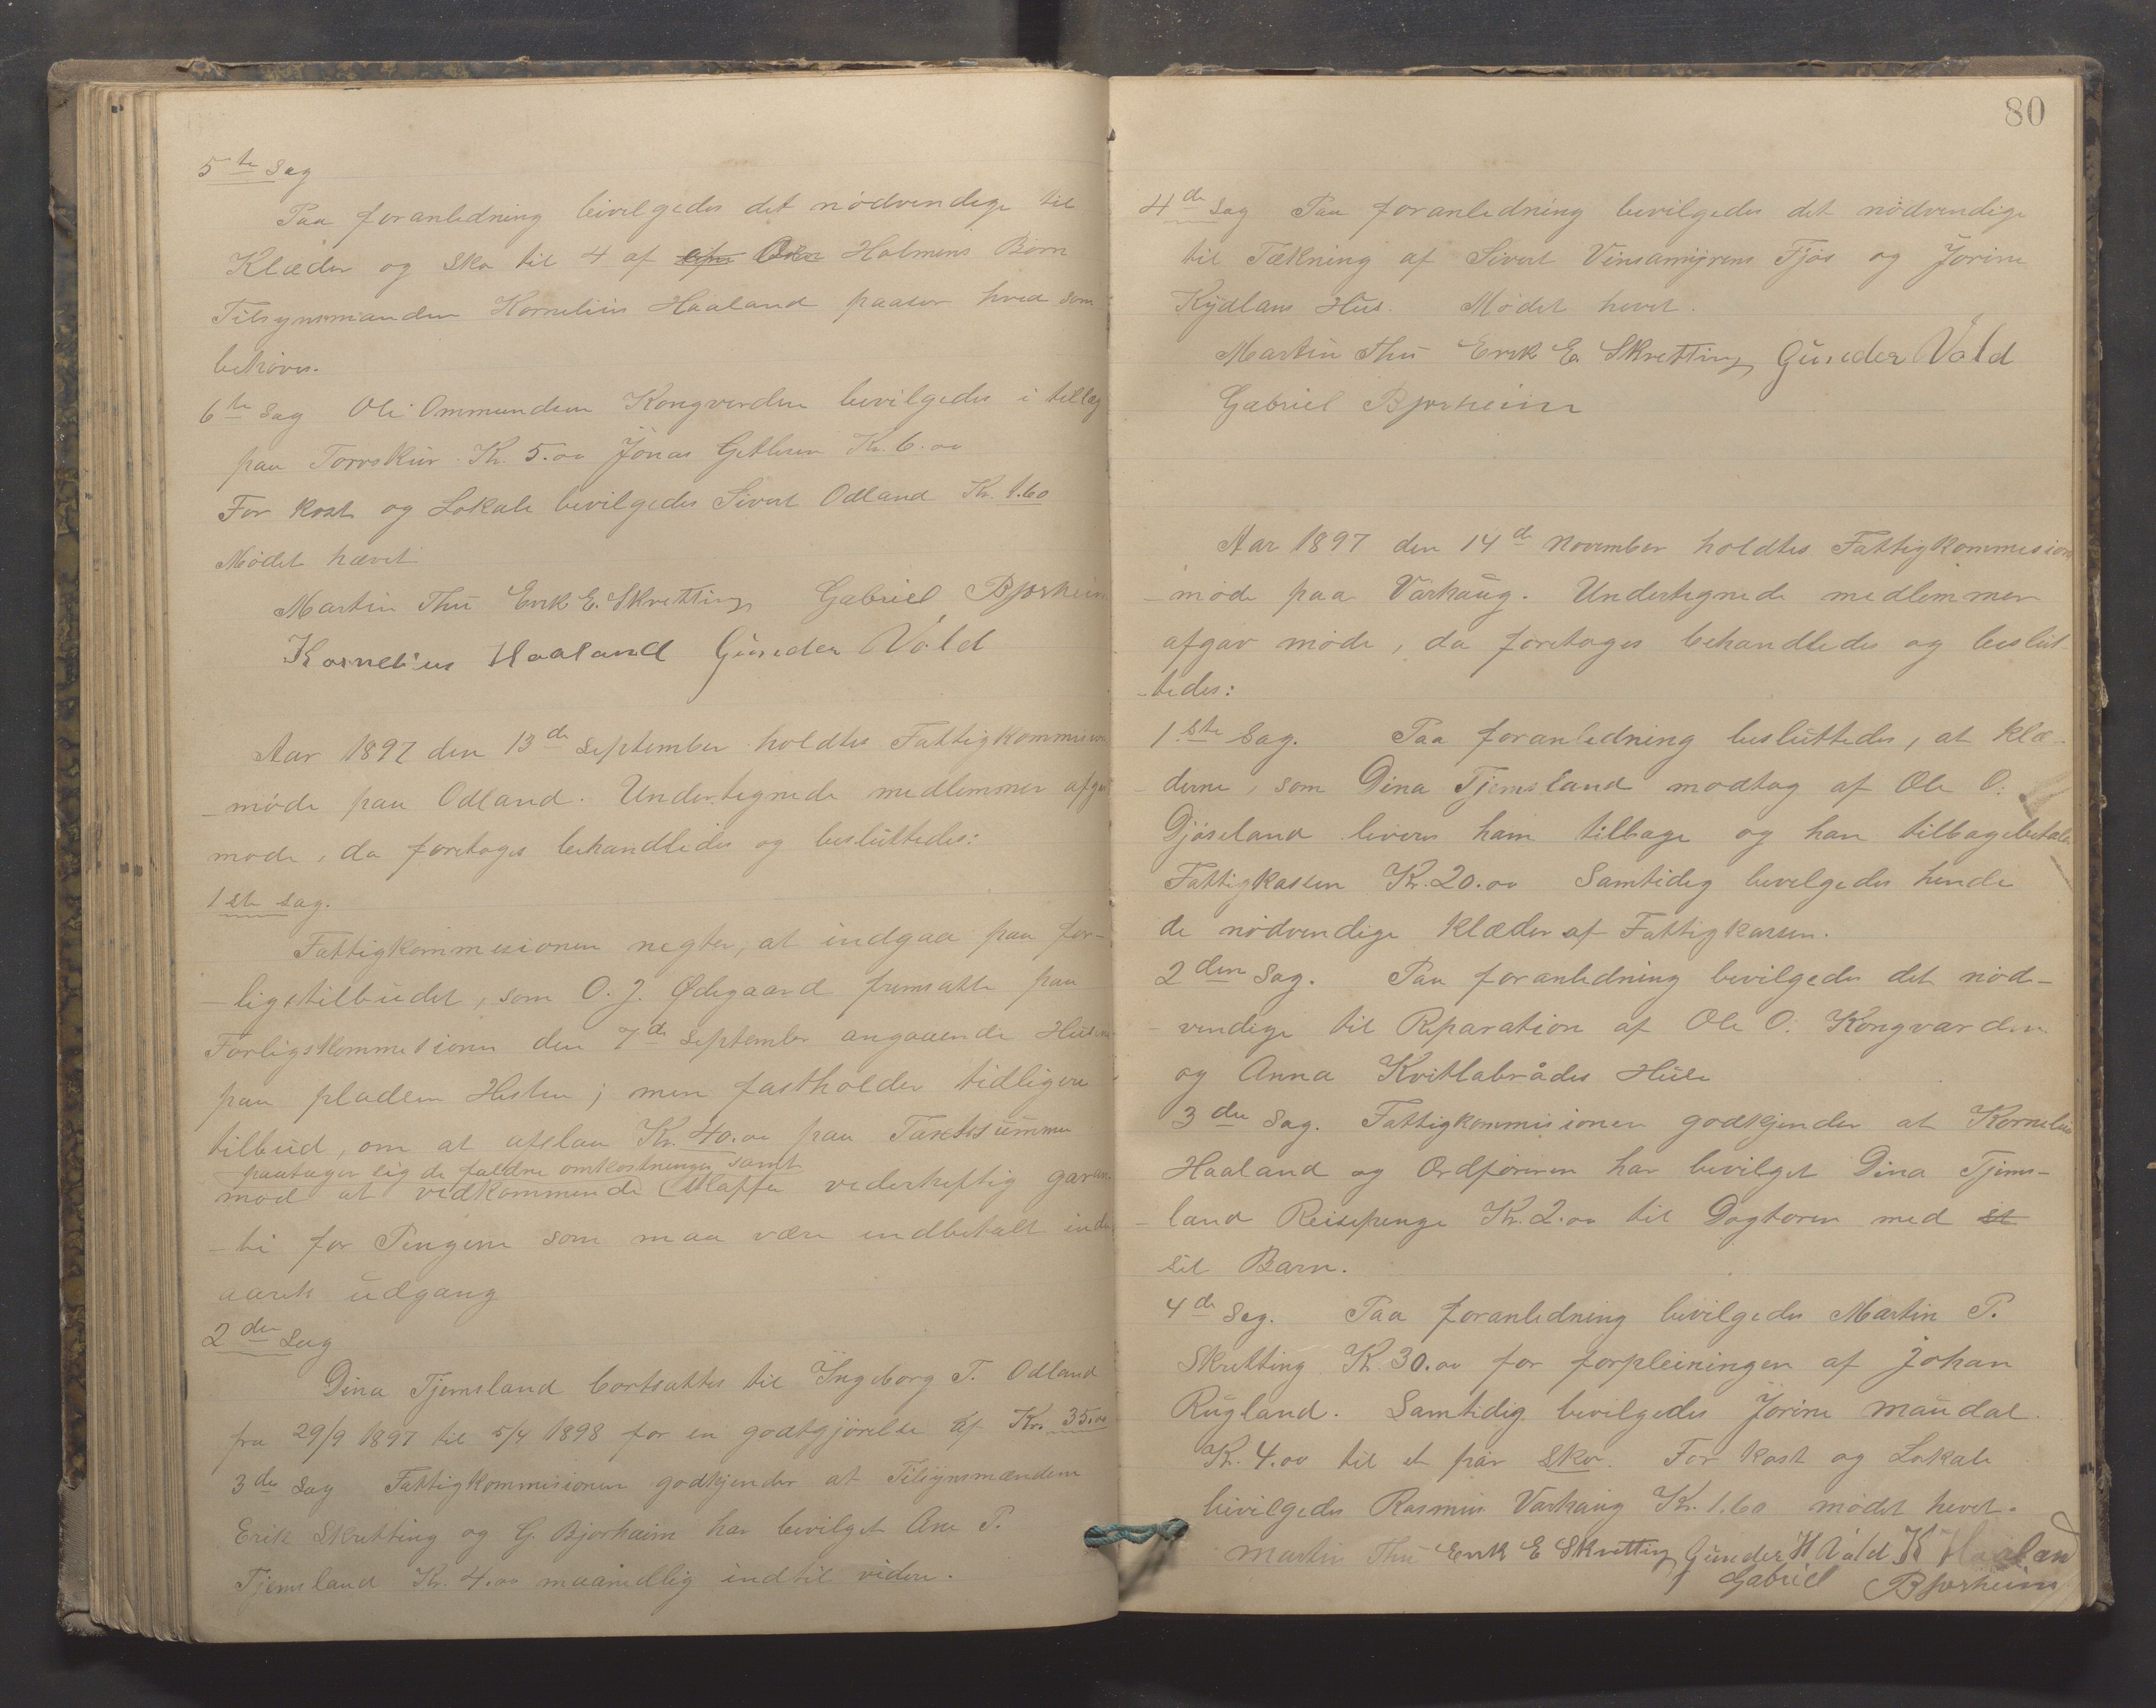 5te Sag
Paa foranledning bivilgedes det nödvendige til
Klæder og Sko til 4 af Holmens Börn
Tilsynsmanden Kornelius Haaland paaser hvad som
behöves.
6te Sag Ole Ommundsen Kongverden bevilgedes i tillæg
paa Torvskur Kr. 5.00 Jonas Kr. 6.00
For kost og Lokale bevilgedes Sivert Odland Kr. 1.60
Mödet hævet
Martin Thu Erik E. Skretting Gabriel Bjorheim
Kornelius Haaland Gunder Vold
Aar 1897 den 13de September holdtes Fattigkommision
-möde paa Odland. Undertegnede medlemmer afgav
möde, da foretoges behandledes og besluttedes:
1ste Sag.
Fattigkommisionen negter, at indgaa paa for-
-ligstilbudet, som O. J. Ødegaard fremsatte paa
Forligskommisionen den 7de September angaaende Huset
paa pladsen Hesten; men fastholder tidligere
tilbud, om at afslaa Kr. 40.00 paa Taxtsummen
paatager sig de faldne omkostninger samt
mod at vedkommende skaffer vederheftig garan-
-ti for Pengene som maa være indbetalt inden
aarets udgang
2den Sag
Dina Tjemsland bortsattes til Ingeborg T. Odland
fra 29/9 1897 til 5/4 1898 for en godtgjörelse af Kr. 35.00
3de Sag Fattigkommisionen godkjender at Tilsynsmændene
Erik Skretting og G. Bjorheim har bevilget Ane P.
Tjemsland Kr. 4.00 maanedlig indtil videre.
80
4de Sag Paa foranledning bevilgedes det nödvendige
til Tækning af Sivert Vinsamyrens Fjös og Jorine
Kydlans Hus. Mödet hevet.
Martin Thu Erik E Skretting Gunder Vold
Gabriel Bjorheim
Aar 1897 den 14de November holdtes Fattigkommision
-möde paa Varhaug. Undertegnede medlemmer
afgav möde, da foretoges behandledes og beslut-
-tedes:
1.ste Sag. Paa foranledning besluttedes, at klæ-
derne, som Dina Tjemsland modtog af Ole O.
Djöseland leveres ham tilbage og han tilbagebetaler
Fattigkassen Kr. 20.00 Samtidig bevelgedes hende
de nödvendige klæder af Fattigkassen.
2den Sag. Paa foranledning bevilgedes det nöd-
vendige til Reparation af Ole O. Kongvarden
og Anna Kvitlabrådes Huse
3de Sag. Fattigkommisionen godkjender at Kornelius
Haaland og Ordföreren har bevilget Dina Tjems-
-land Reisepenge Kr. 2.00 til Dogtoren med st
sit Barn.
4de Sag. Paa foranledning bevilgedes Martin P.
Skretting Kr. 30.00 for forpleiningen af Johan
Rugland. Samtidig bevilgedes Jorine Maudal
Kr. 4.00 til et pär Skor. For kost og Lokale
bevilgedes Rasmus Varhaug Kr. 1.60 mödet hevet.
Martin Thu Erik E Skretting Gunder H Vold K Haaland
Gabriel Bjorheim